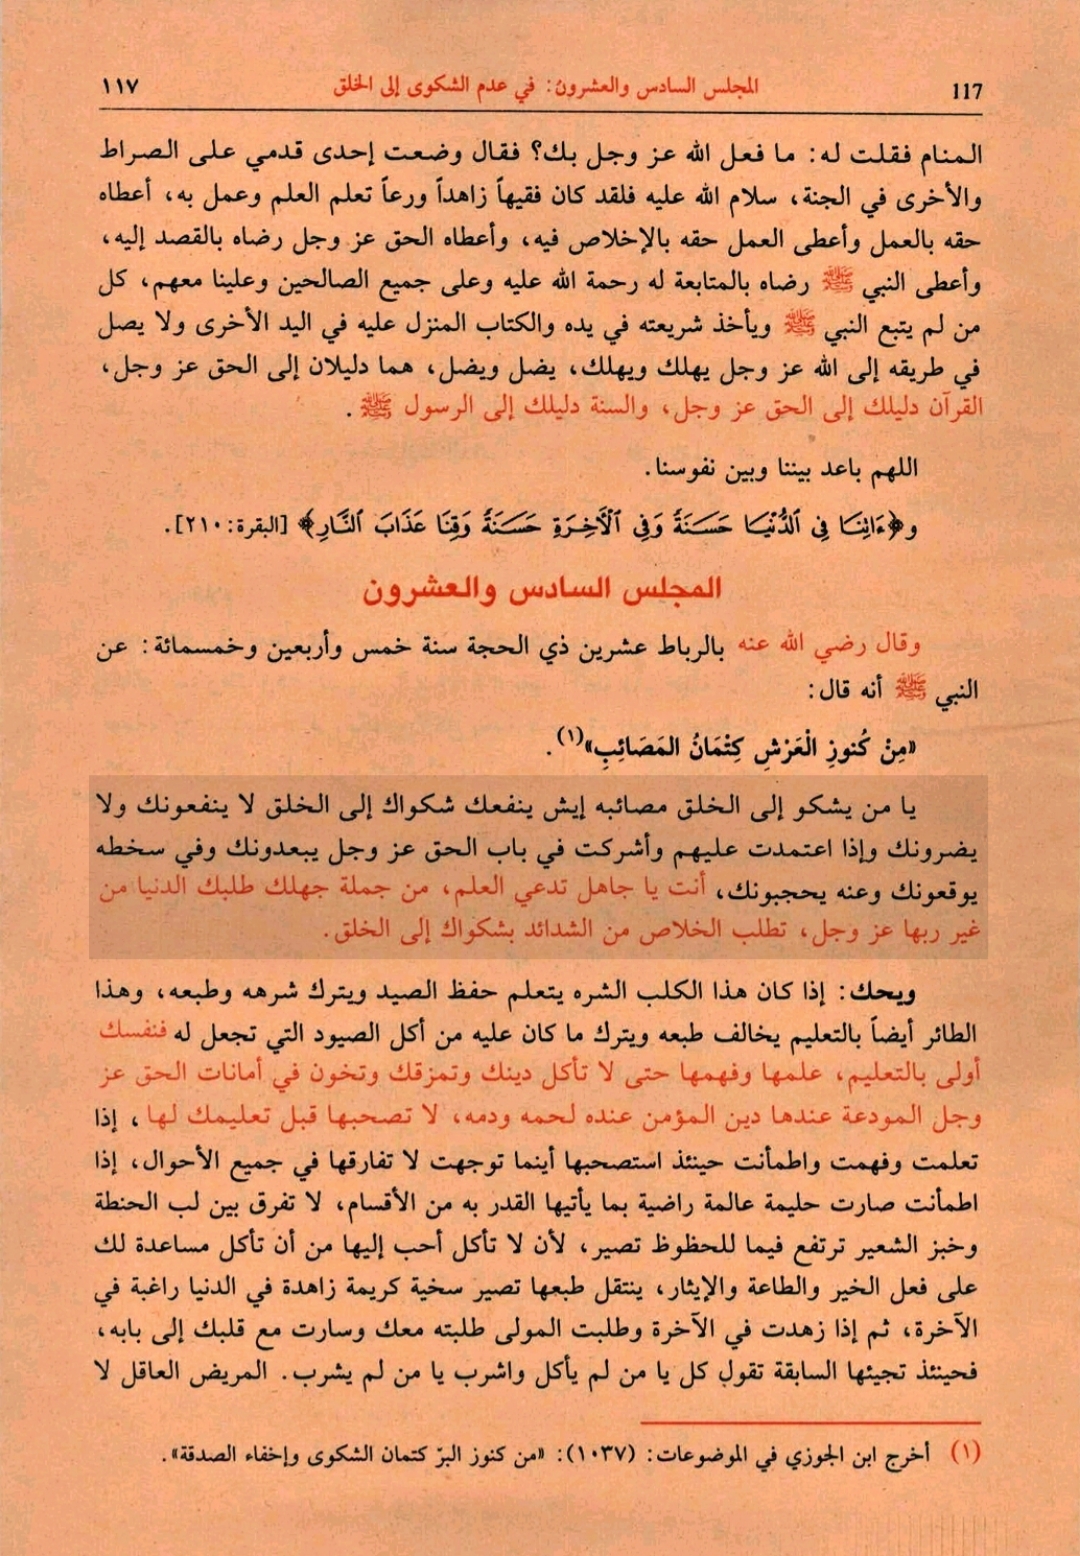 117 المجلس السادس والعشرون: في عدم الشكوى إلى الخلق ١١٧
المنام فقلت له: ما فعل الله عز وجل بك؟ فقال وضعت إحدى قدمي على الصراط
والأخرى في الجنة، سلام الله عليه فلقد كان فقيهاً زاهداً ورعاً تعلم العلم وعمل به، أعطاه
حقه بالعمل وأعطى العمل حقه بالإخلاص فيه، وأعطاه الحق عز وجل رضاه بالقصد إليه،
وأعطى النبي ﷺ رضاه بالمتابعة له رحمة الله عليه وعلى جميع الصالحين وعلينا معهم، كل
من لم يتبع النبي ﷺ ويأخذ شريعته في يده والكتاب المنزل عليه في اليد الأخرى ولا يصل
في طريقه إلى الله عز وجل يهلك ويهلك، يضل ويضل، هما دليلان إلى الحق عز وجل،
القرآن دليلك إلى الحق عز وجل، والسنة دليلك إلى الرسول ﷺ.
اللهم باعد بيننا وبين نفوسنا.
و﴿ءَاتِنَا فِي الدُّنْيَا حَسَنَةً وَفِي الْآخِرَةِ حَسَنَةً وَقِنَا عَذَابَ النَّارِ﴾ [البقرة: ٢١٠].
المجلس السادس والعشرون
وقال رضي الله عنه بالرباط عشرين ذي الحجة سنة خمس وأربعين وخمسمائة: عن
النبي ﷺ أنه قال:
«مِنْ كُنوزِ الْعَرْشِ كِتْمَانُ المَصَائِبِ»(١).
يا من يشكو إلى الخلق مصائبه إيش ينفعك شكواك إلى الخلق لا ينفعونك ولا
يضرونك وإذا اعتمدت عليهم وأشركت في باب الحق عز وجل يبعدونك وفي سخطه
يوقعونك وعنه يحجبونك، أنت يا جاهل تدعي العلم، من جملة جهلك طلبك الدنيا من
غير ربها عز وجل، تطلب الخلاص من الشدائد بشكواك إلى الخلق.
ويحك: إذا كان هذا الكلب الشره يتعلم حفظ الصيد ويترك شرهه وطبعه، وهذا
الطائر أيضاً بالتعليم يخالف طبعه ويترك ما كان عليه من أكل الصيود التي تجعل له فنفسك
أولى بالتعليم، علمها وفهمها حتى لا تأكل دينك وتمزقك وتخون في أمانات الحق عز
وجل المودعة عندها دين المؤمن عنده لحمه ودمه، لا تصحبها قبل تعليمك لها، إذا
تعلمت وفهمت واطمأنت حينئذ استصحبها أينما توجهت لا تفارقها في جميع الأحوال، إذا
اطمأنت صارت حليمة عالمة راضية بما يأتيها القدر به من الأقسام، لا تفرق بين لب الحنطة
وخبز الشعير ترتفع فيما للحظوظ تصير، لأن لا تأكل أحب إليها من أن تأكل مساعدة لك
على فعل الخير والطاعة والإيثار، ينتقل طبعها تصير سخية كريمة زاهدة في الدنيا راغبة في
الآخرة، ثم إذا زهدت في الآخرة وطلبت المولى طلبته معك وسارت مع قلبك إلى بابه،
فحينئذ تجيئها السابقة تقول كل يا من لم يأكل واشرب يا من لم يشرب. المريض العاقل لا
(١) أخرج ابن الجوزي في الموضوعات: (١٠٣٧): «من كنوز البرّ كتمان الشكوى وإخفاء الصدقة».